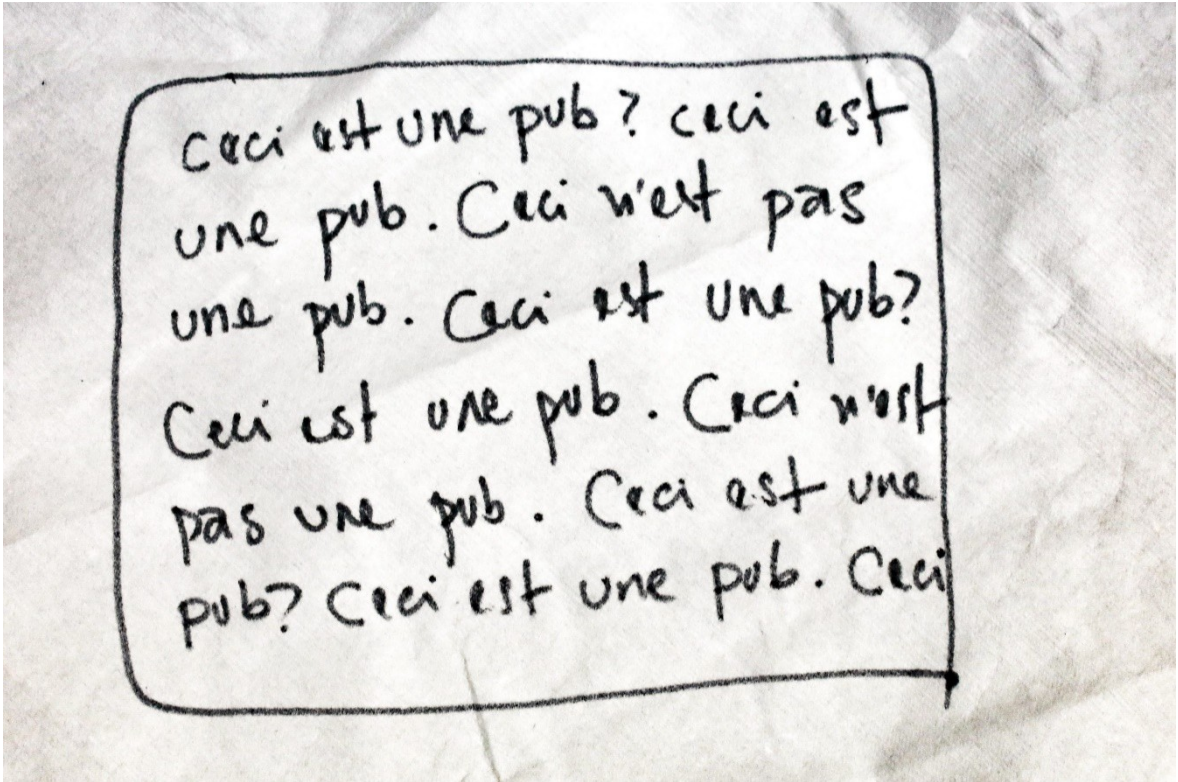 ceci est une pub? ceci est
une pub. Ceci n'est pas
une pub. Ceci est une pub?
Ceci est une pub. Ceci n'est
pas une pub. Ceci est une
pub? Ceci est une pub. Ceci